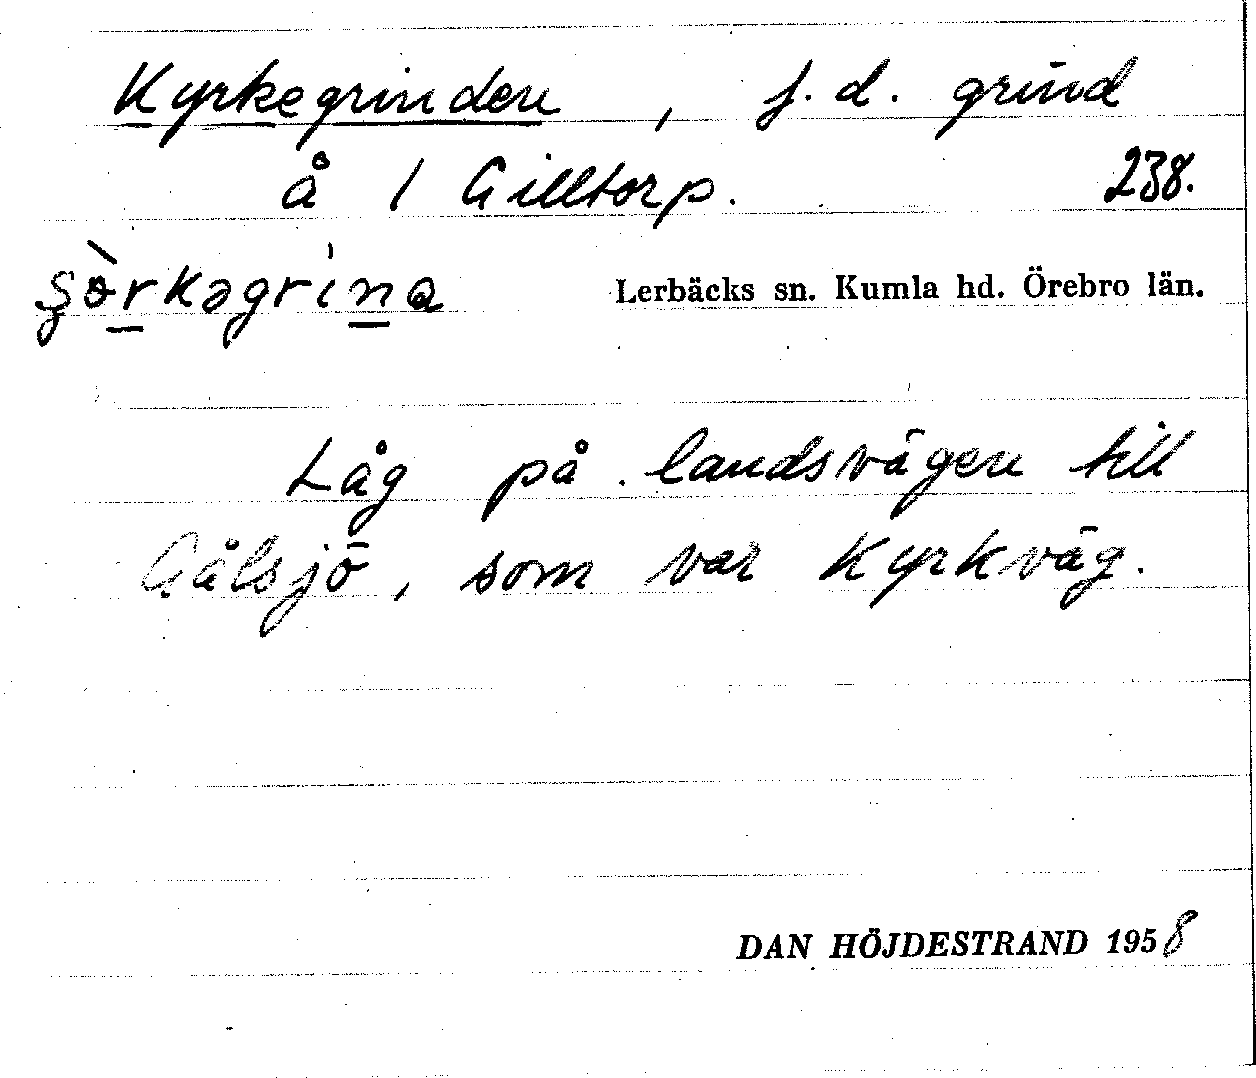 Kyrkegrinden, f.d. grind
å 1 Gilltorp. 238.
şòrkəgrína Lerbäcks sn. Kumla hd. Örebro län.
Låg på landsvägen till
Gålsjö, som var Kyrkväg.
DAN HÖJDESTRAND 1958